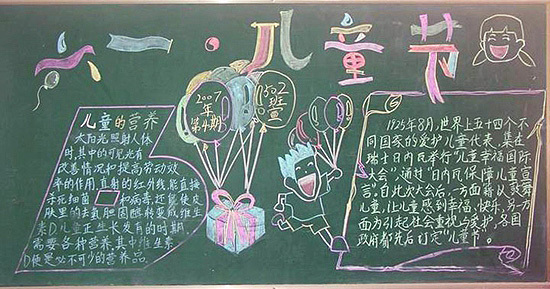 六一·儿童节
儿童的营养
太阳光照射人体
时,其中的可见光有
改善情和提高劳动效
率的作用,直射的红外线,能直接
杀死细菌和病毒,还能使皮
肤里的去氢胆固醇转变成维生
素D,儿童正生长发育的时期,
需要各种营养,其中维生素
D便是必不可少的营养品。
2007
年
第4期
1302
班
宣
1925年8月,世界上五十四个不
同国家的爱护儿童代表,集在
瑞士日内瓦举行"儿童幸福国际
大会",通过"日内瓦保障儿童宣
言",自此次大会后,一方面藉以鼓舞
儿童,让儿童感到幸福、快乐,另一方
面为引起社会重视与爱护,各国
政府都先后订定"儿童节"。